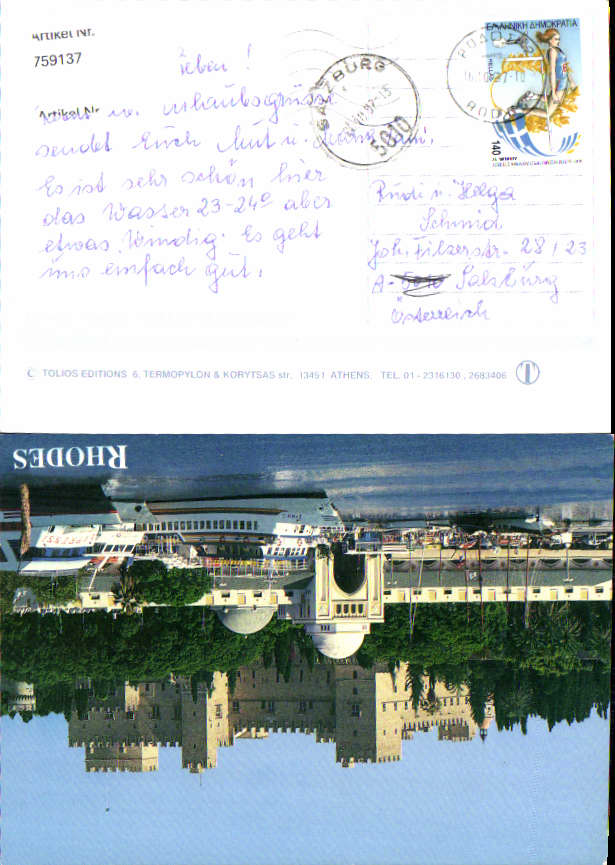 Artikel Nr.
759137
Artikel Nr
Lieben!
Urlaubsgrüsse
sendet Euch Mut u.
Es ist sehr schön hier
das Wasser 23-24° aber
etwas windig. Es geht
uns einfach gut.
SALZBURG
5010
ΕΛΛΗΝΙΚΗ ΔΗΜΟΚΡΑΤΙΑ
HELLAS
140
Rudi u. Helga
Schmid
Joh. Filzerstr. 28/23
A-5010 Salzburg
Österreich
© TOLIOS EDITIONS 6, TERMOPYLON & KORYTSAS str. 13451 ATHENS. TEL. 01-2316130, 2683406
T
RHODES